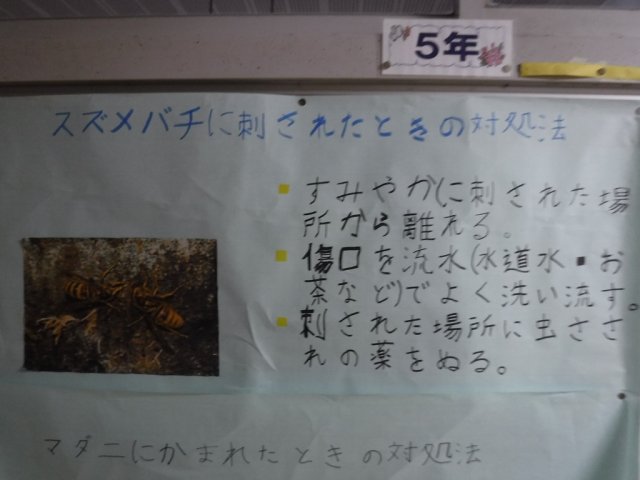 5年
スズメバチに刺されたときの対処法
すみやかに刺された場
所から離れる。
傷口を流水(水道水・お
茶など)でよく洗い流す。
刺された場所に虫ささ
れの薬をぬる。
マダニにかまれたときの対処法